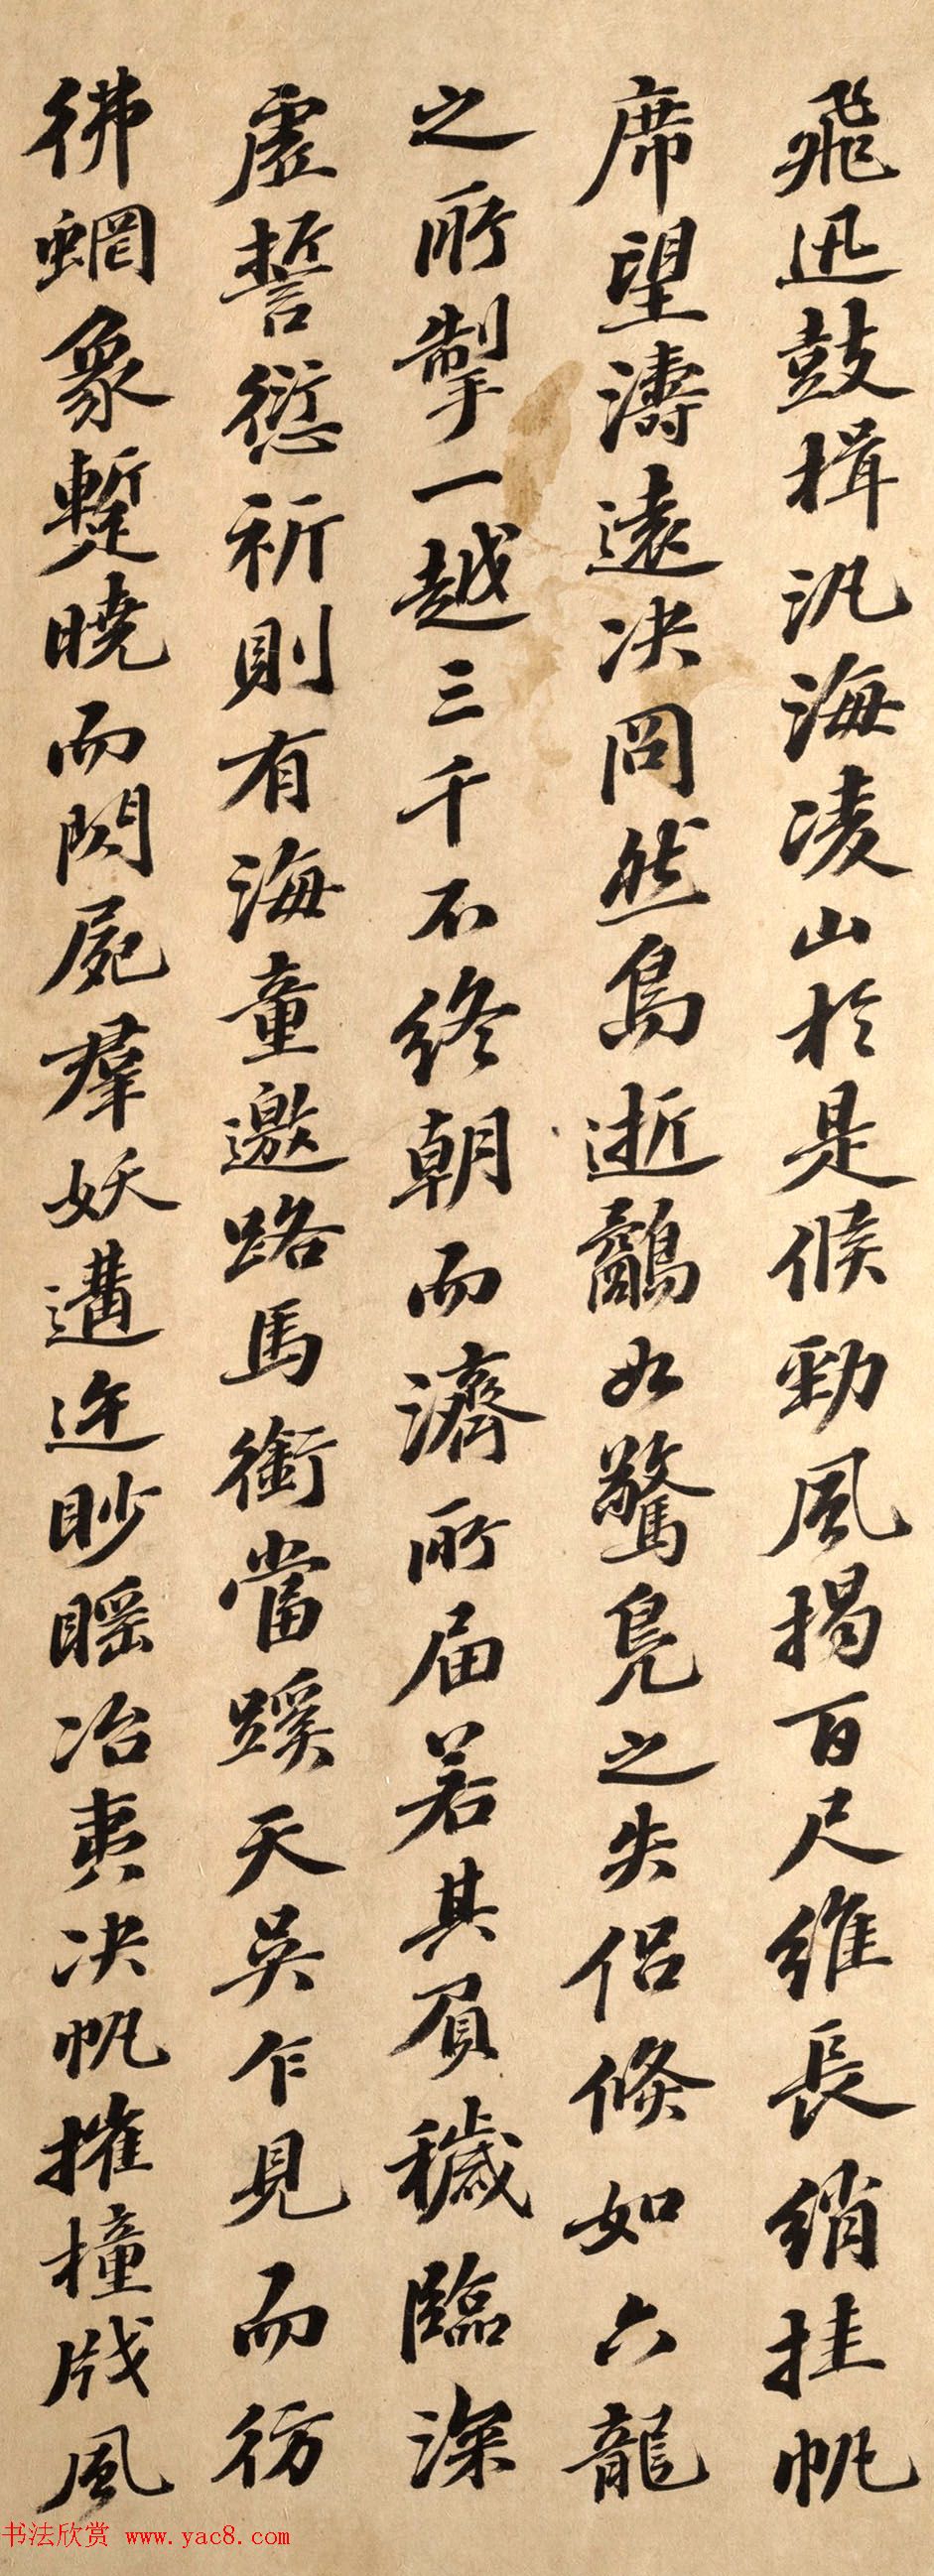 飛迅鼓楫汎海凌山於是候勁風揭百尺維長綃挂帆
席望濤遠決冏然鳥逝鷸如驚鳧之失侶倏如六龍
之所掣一越三千不終朝而濟所屆若其負穢臨深
虛誓愆祈則有海童邀路馬銜當蹊天吳乍見而彷
彿蝄象暫曉而閃屍羣妖遘迕眇䁘冶夷決帆摧橦戕風
书法欣赏 www.yac8.com